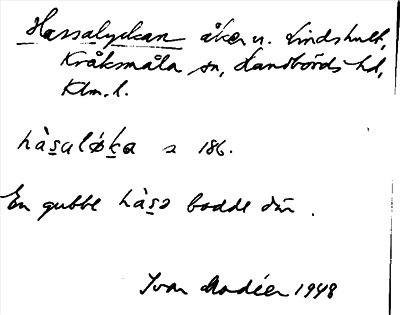 Hassalyckan åker u. Lindshult,
Kråksmåla sn, Handbörds hd,
Klm. l.
hàs̱alø̀ḵa s 186.
En gubbe hàs̱ə bodde där.
Ivar Modéer 1948